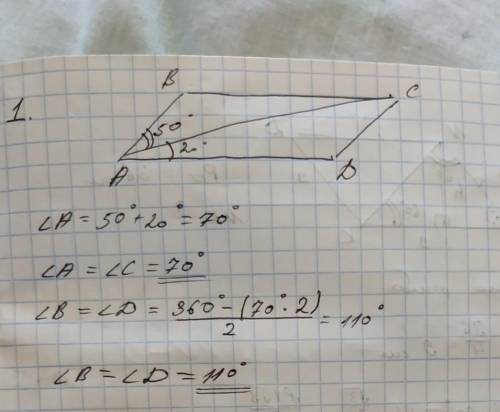 1.
B
C
50°
2.
A
D
∠A = 50° + 20° = 70°
∠A = ∠C = 70°
∠B = ∠D = 360° - (70° · 2) / 2 = 110°
∠B = ∠D = 110°